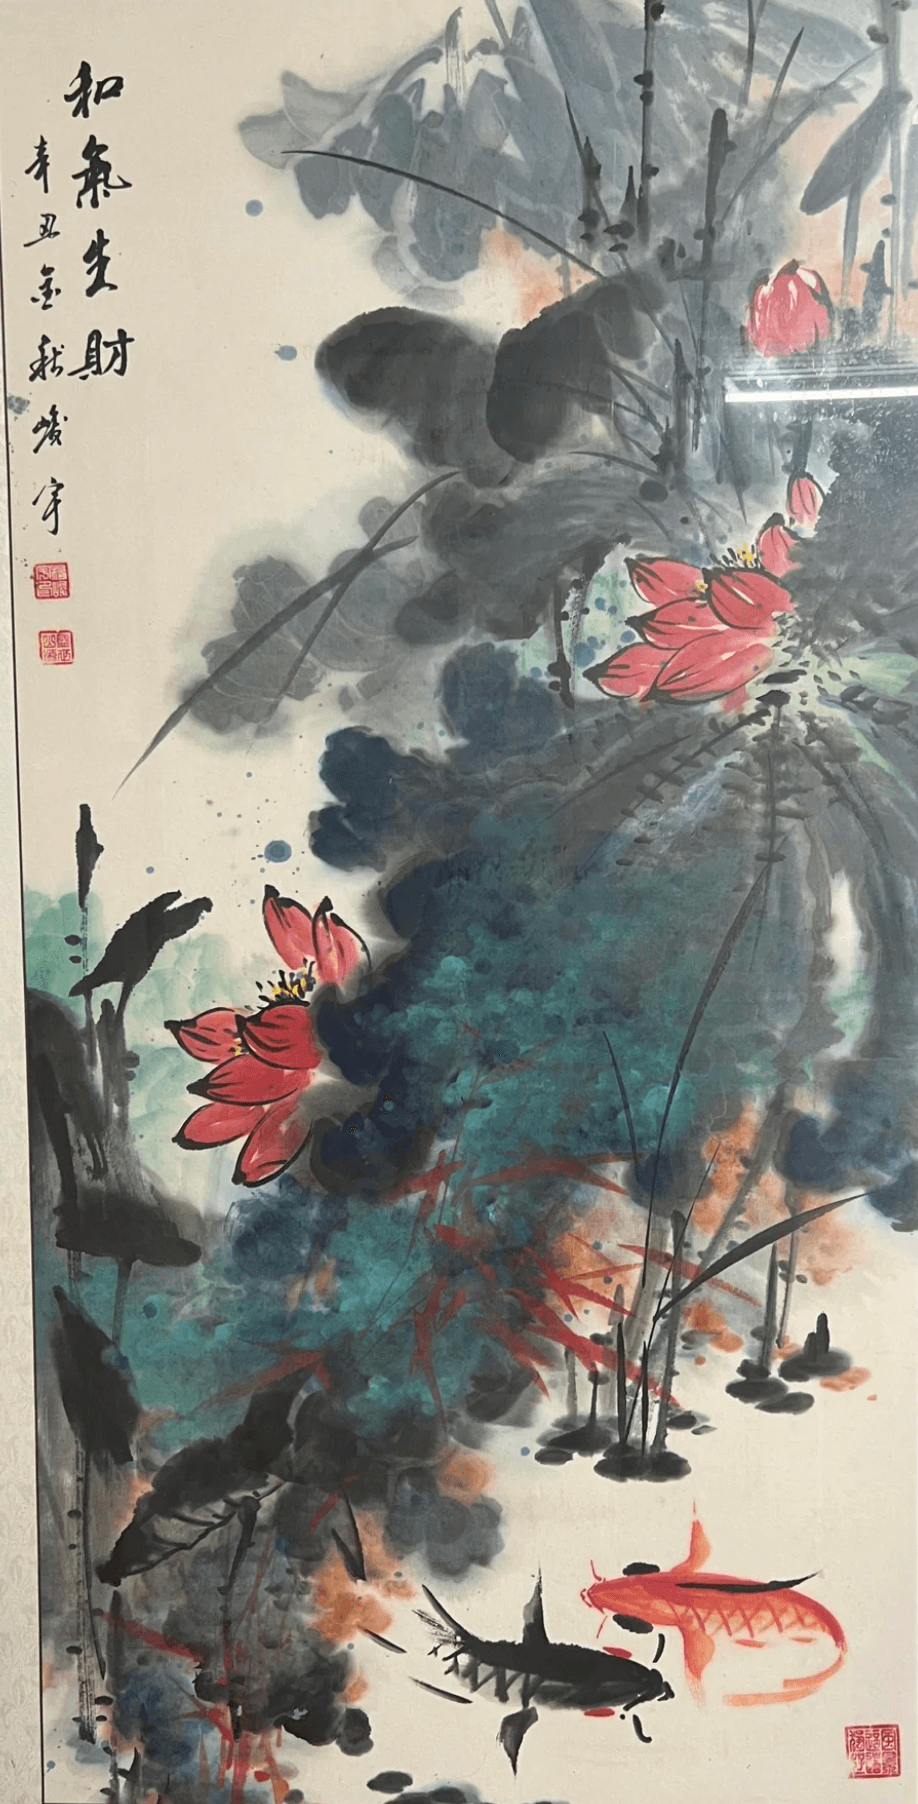 和氣生財
辛丑金秋峻宇